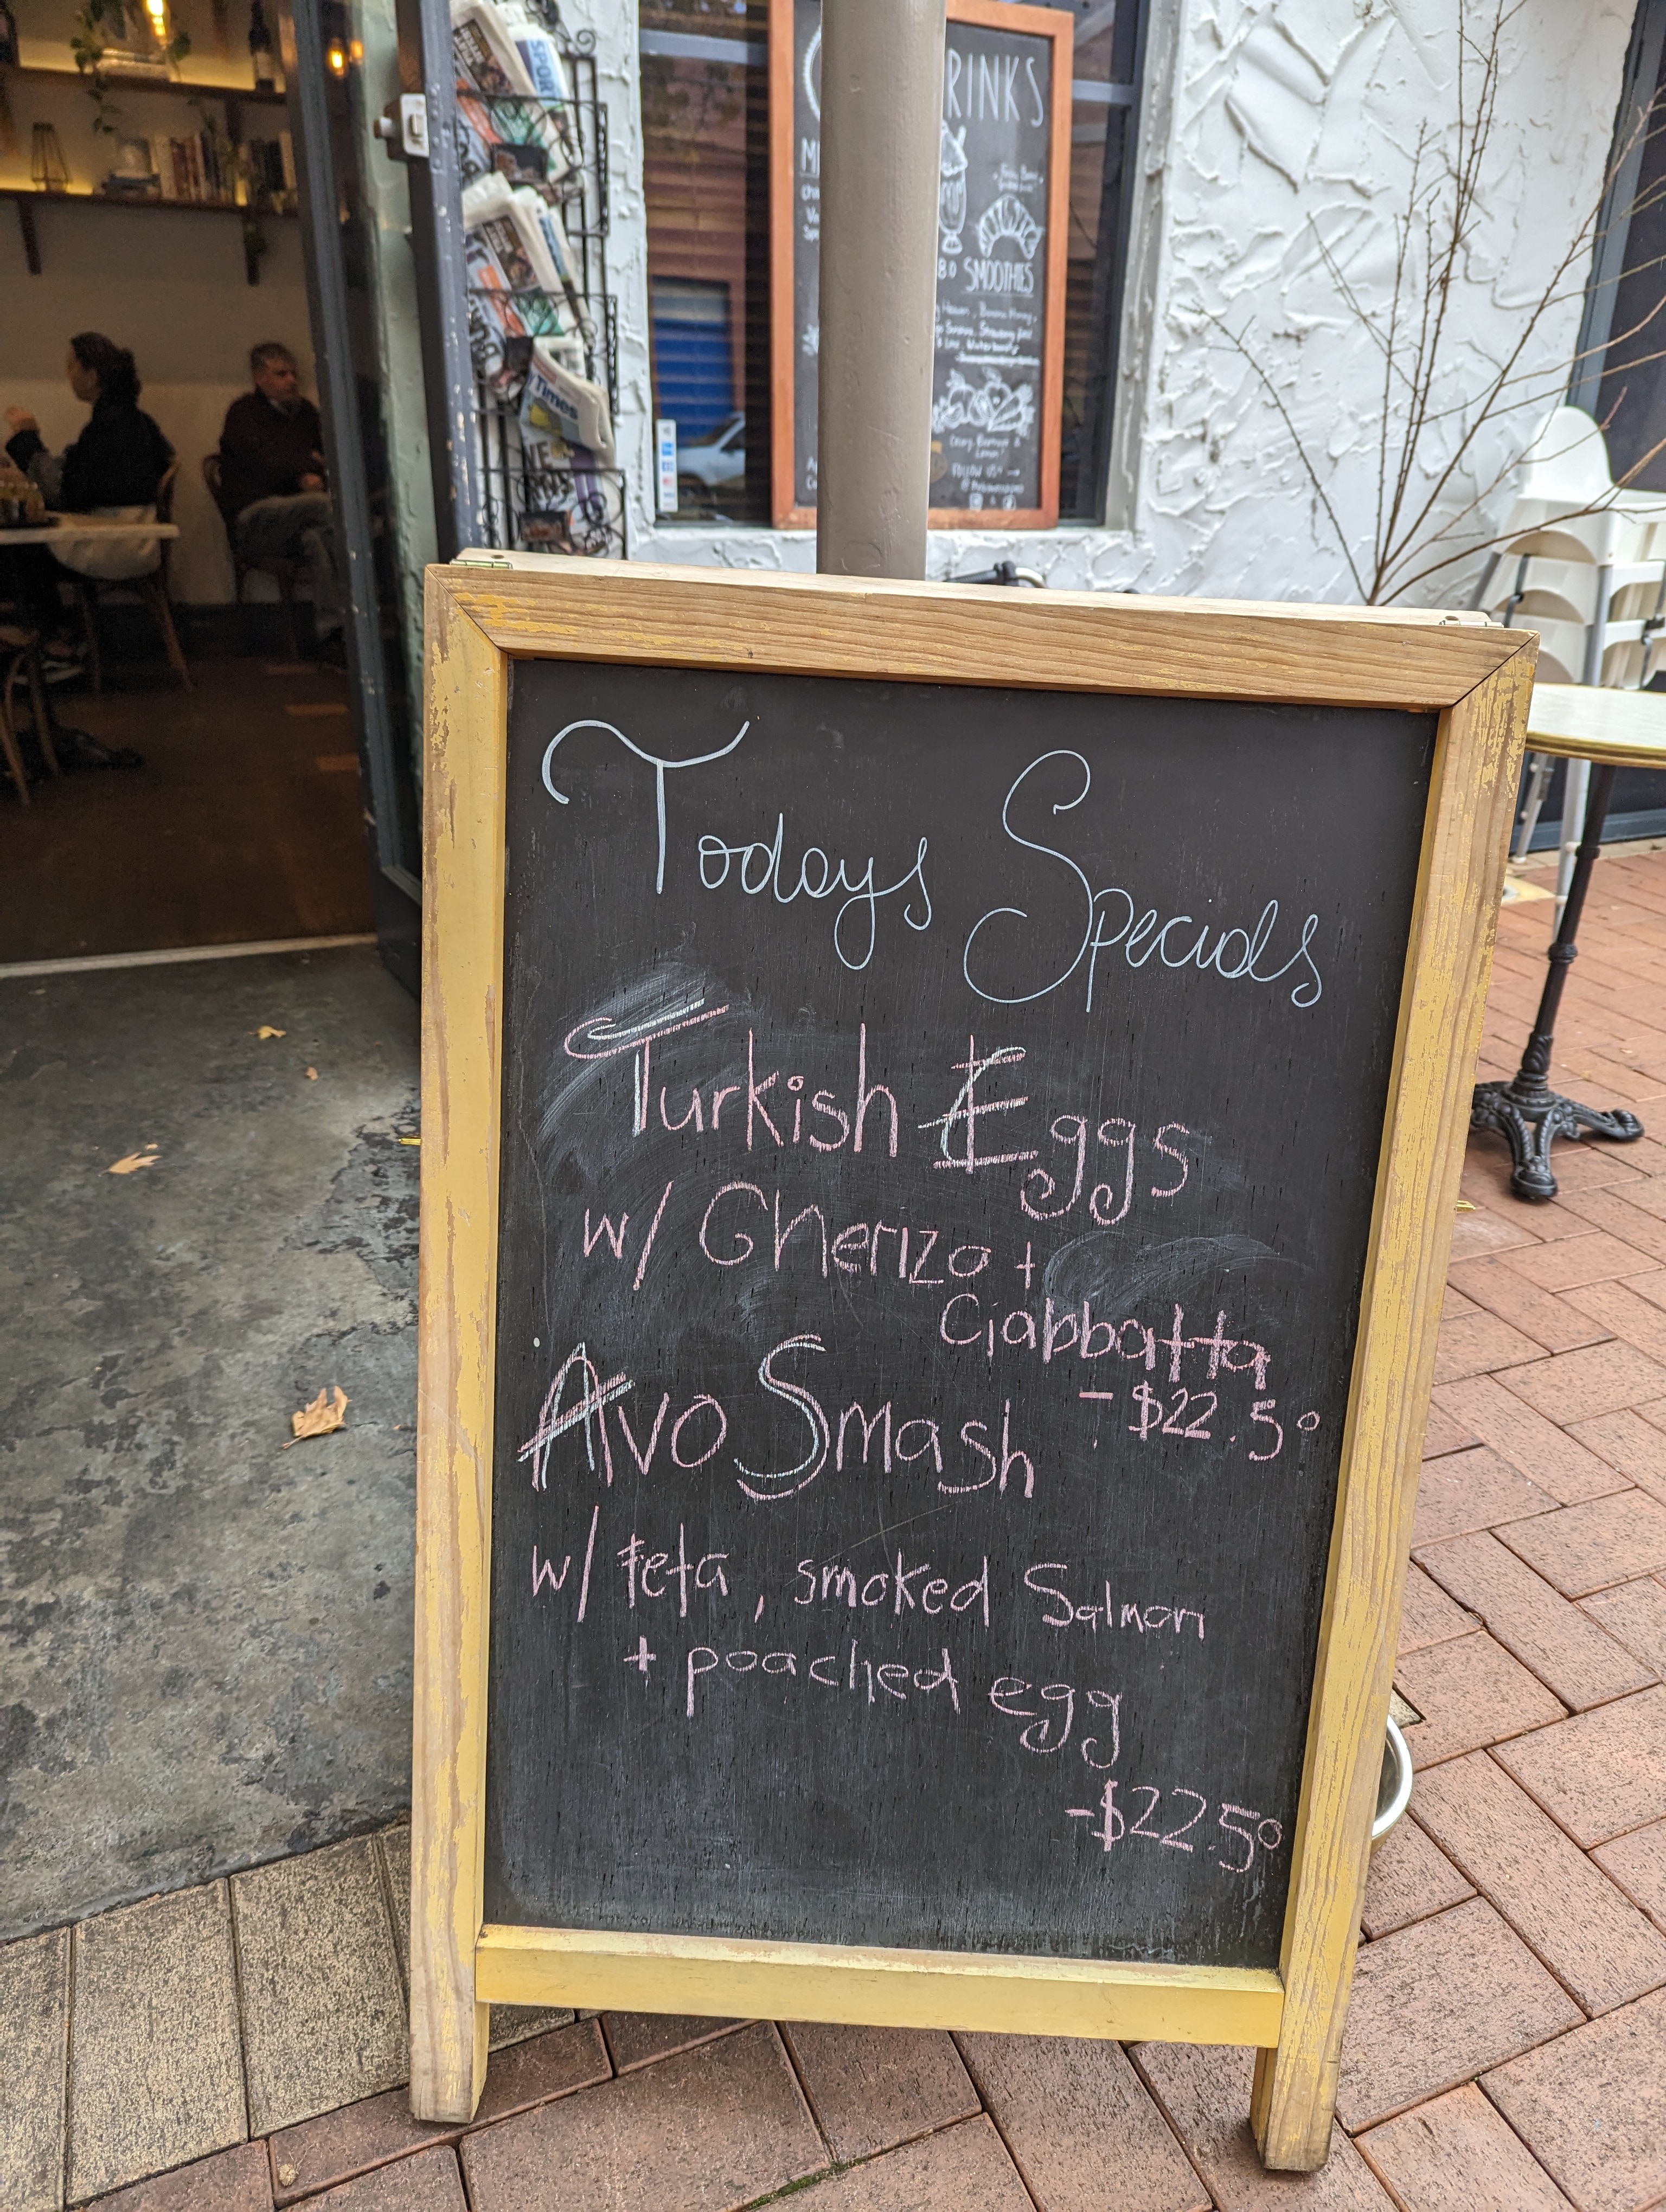 SPORT
Times
RINKS
SMOOTHIES
Todays Specials
Turkish Eggs
w/ Gherizo +
Ciabbatta
- $22.50
Avo Smash
w/ feta, smoked Salmon
+ poached egg
-$22.50